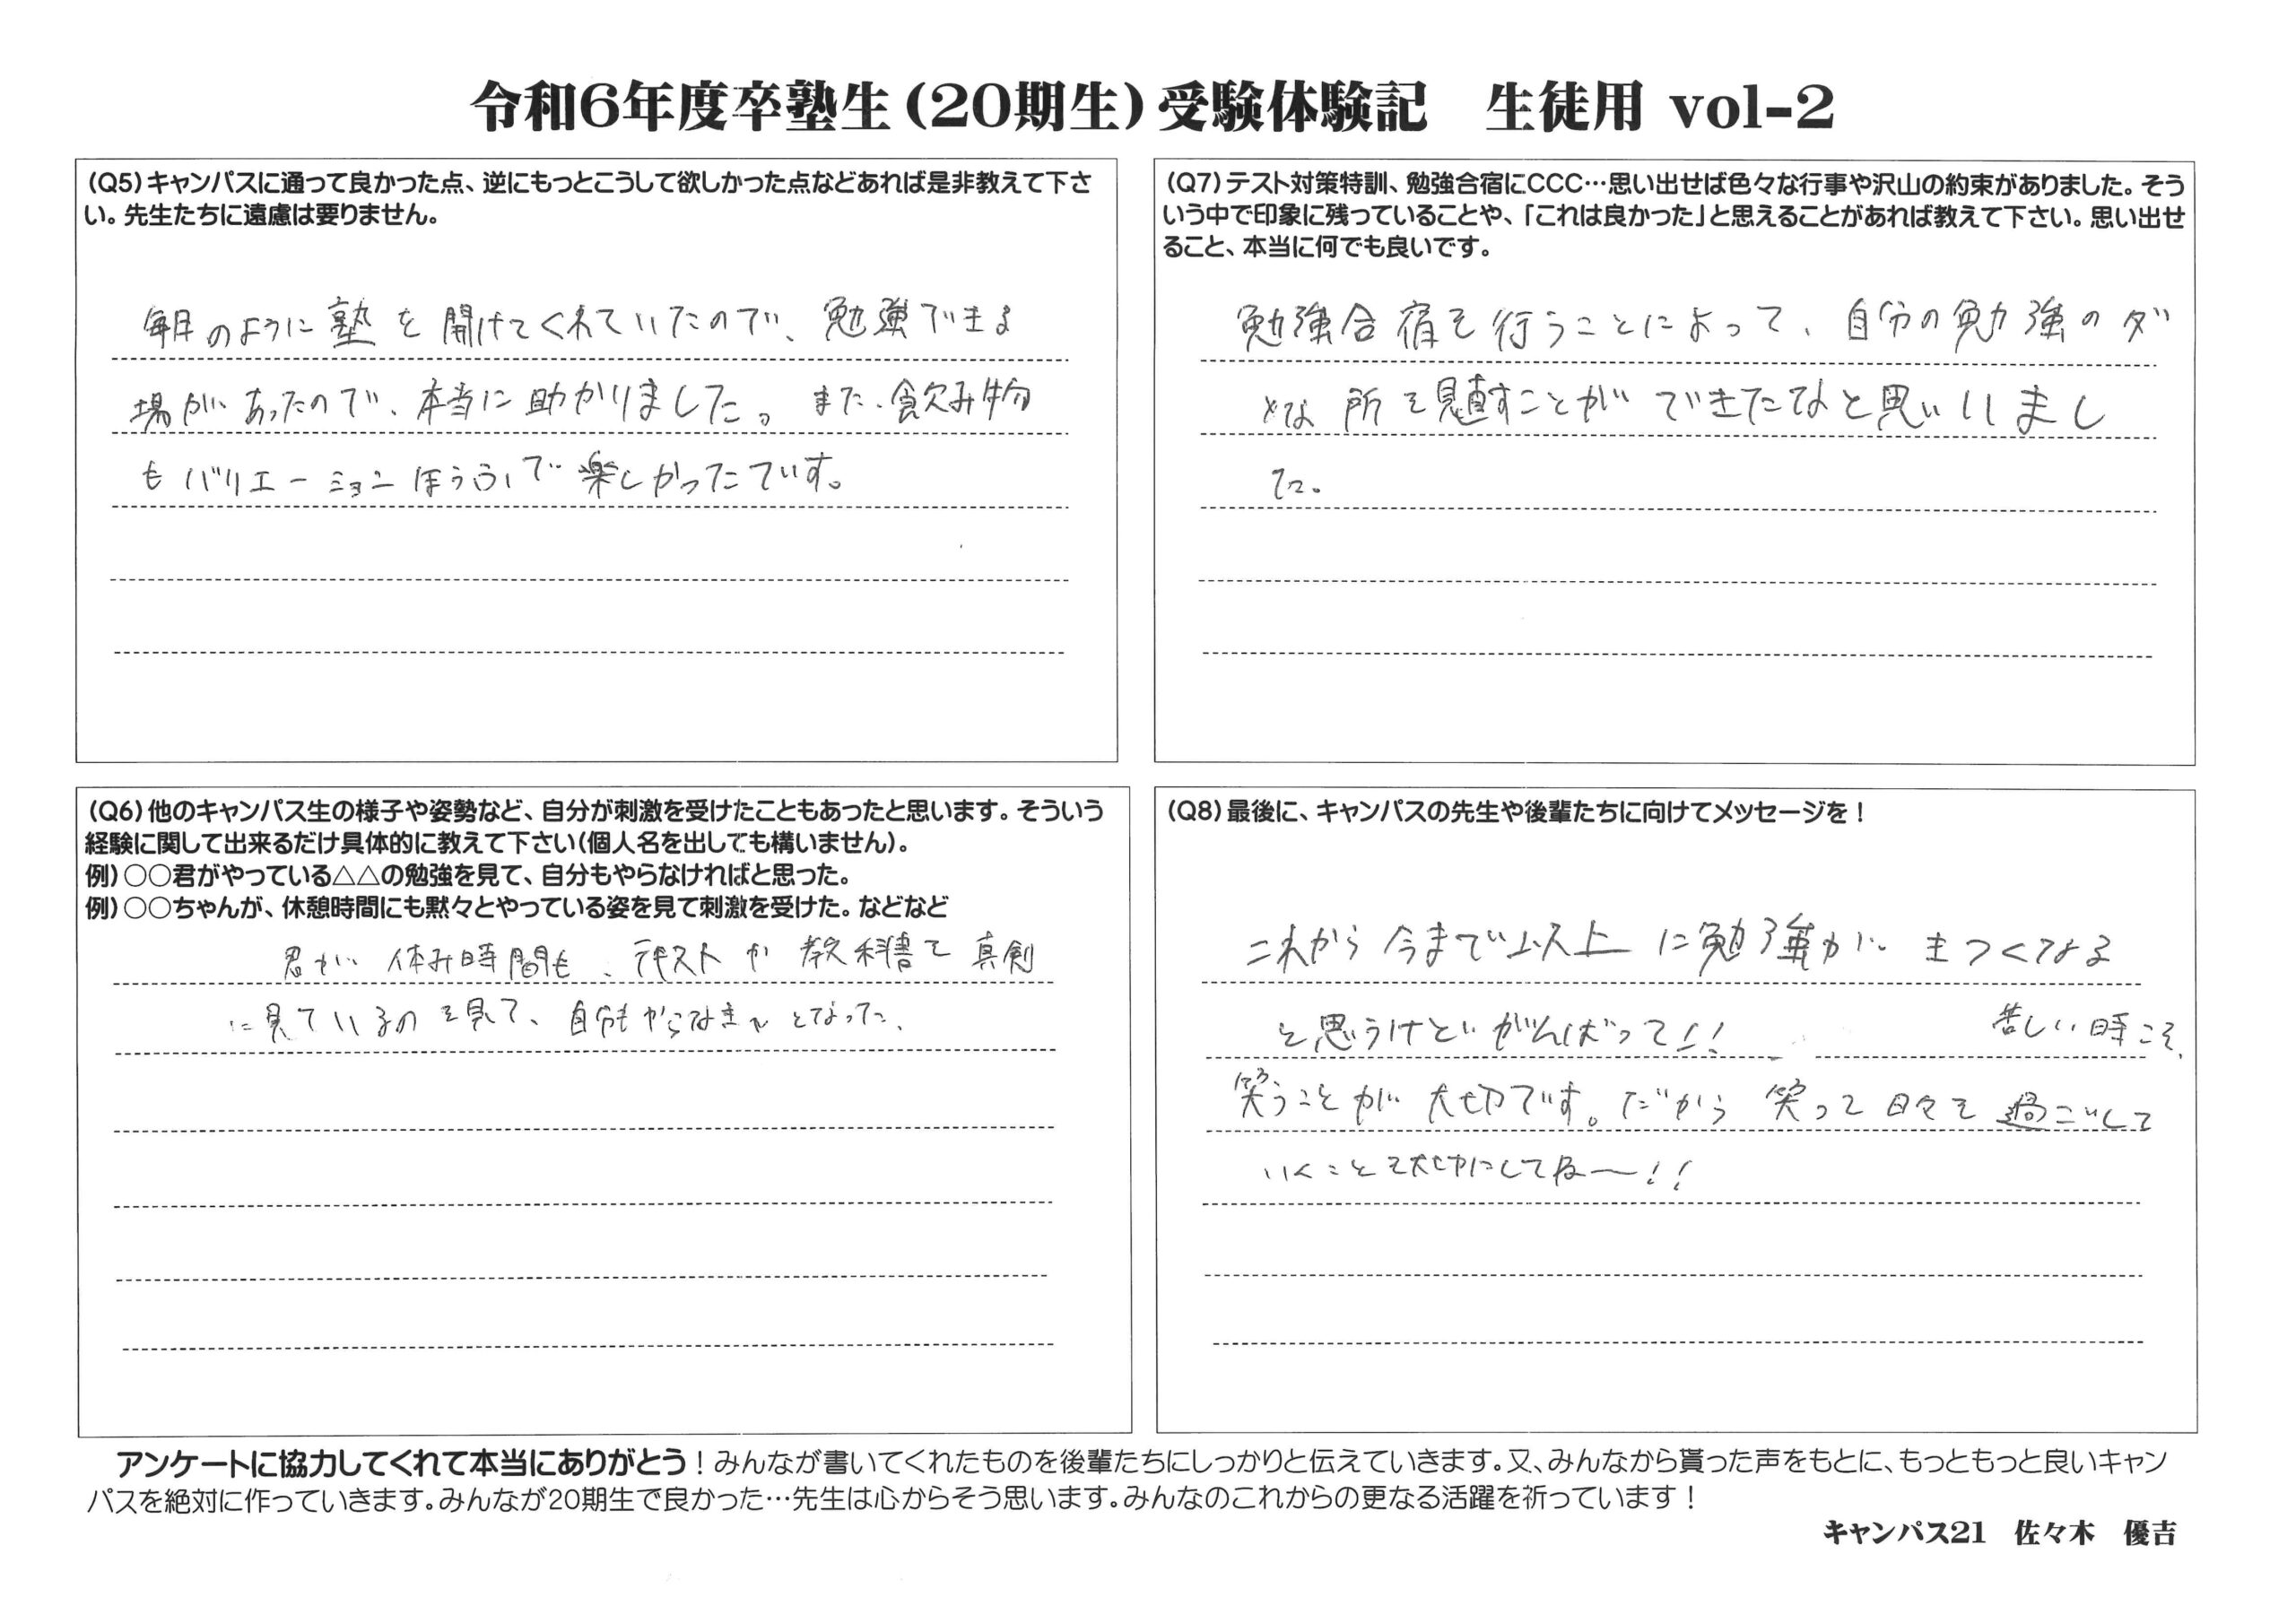 令和6年度卒塾生(20期生)受験体験記　生徒用 vol-2
(Q5)キャンパスに通って良かった点、逆にもっとこうして欲しかった点などあれば是非教えて下さ
い。先生たちに遠慮は要りません。
毎日のように塾を開けてくれていたので、勉強できる
場があったので、本当に助かりました。また、飲み物
もバリエーションほうふで楽しかったです。
(Q6)他のキャンパス生の様子や姿勢など、自分が刺激を受けたこともあったと思います。そういう
経験に関して出来るだけ具体的に教えて下さい(個人名を出しても構いません)。
例)○○君がやっている△△の勉強を見て、自分もやらなければと思った。
例)○○ちゃんが、休憩時間にも黙々とやっている姿を見て刺激を受けた。などなど
君が休み時間も、テキストか教科書を真剣
に見ているのを見て、自分も となった、
(Q7)テスト対策特訓、勉強合宿にCCC…思い出せば色々な行事や沢山の約束がありました。そう
いう中で印象に残っていることや、「これは良かった」と思えることがあれば教えて下さい。思い出せ
ること、本当に何でも良いです。
勉強合宿を行うことによって、自分の勉強のダ
メな所を見直すことができたなと思いまし
た。
(Q8)最後に、キャンパスの先生や後輩たちに向けてメッセージを！
これから今まで以上に勉強がきつくなる
と思うけどがんばって!! 苦しい時こそ、
笑うことが大切です。だから笑って日々を過ごして
いくことを大切にしてね〜!!
アンケートに協力してくれて本当にありがとう！みんなが書いてくれたものを後輩たちにしっかりと伝えていきます。又、みんなから貰った声をもとに、もっともっと良いキャン
パスを絶対に作っていきます。みんなが20期生で良かった…先生は心からそう思います。みんなのこれからの更なる活躍を祈っています！
キャンパス21　佐々木　優吉